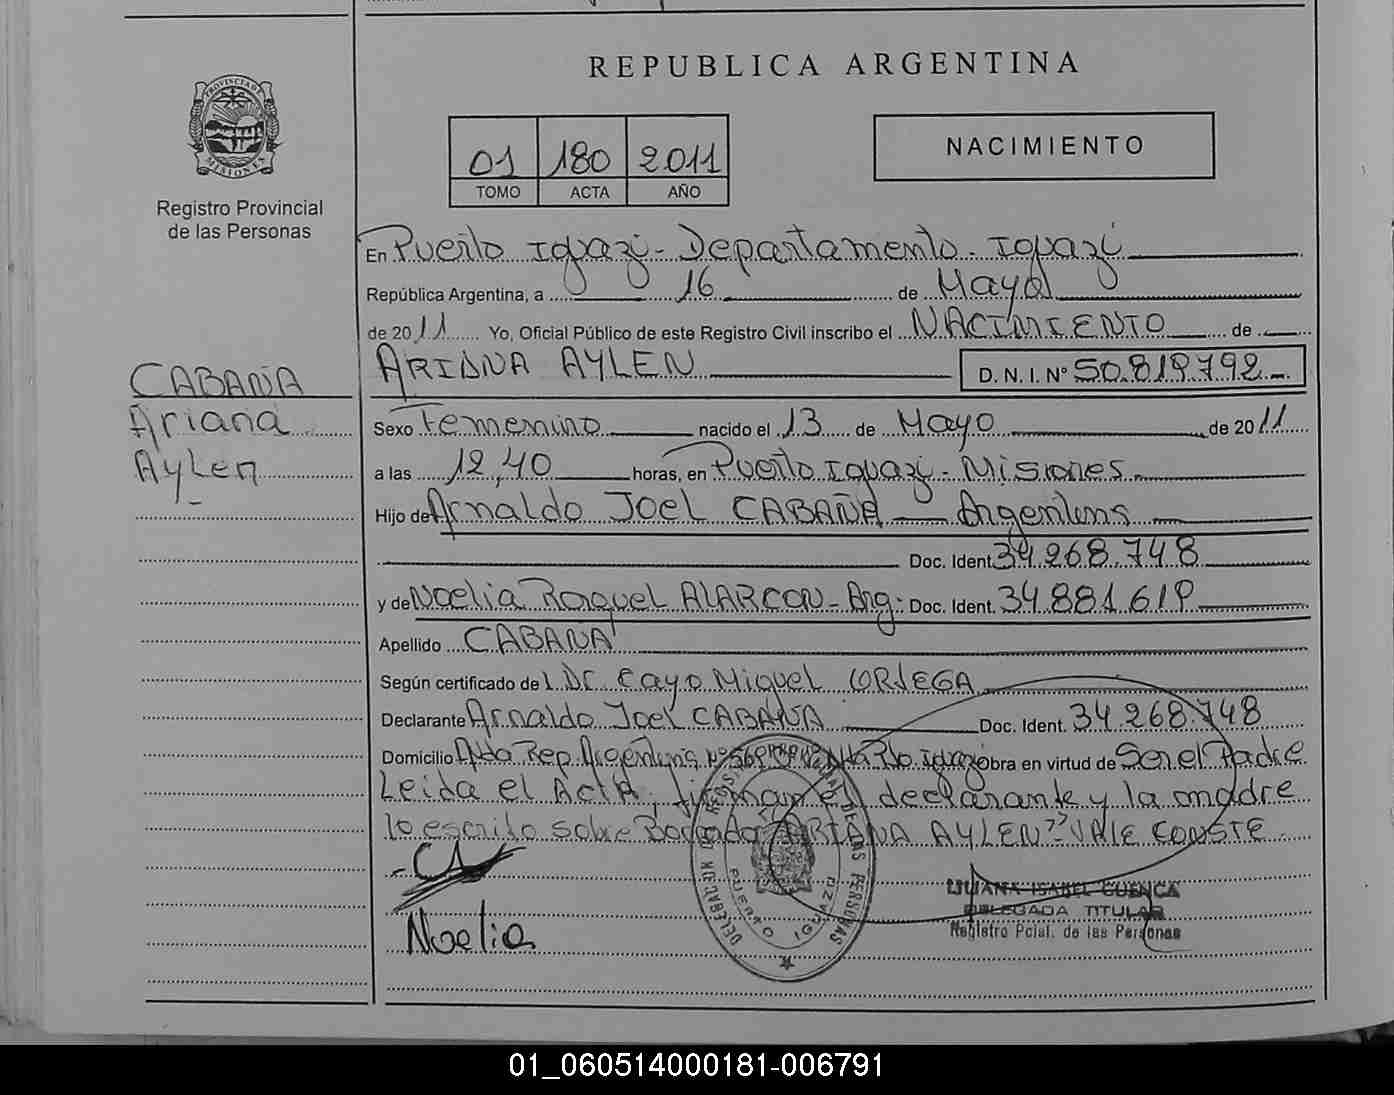 REPUBLICA ARGENTINA
PROVINCIA DE
MISIONES
Registro Provincial
de las Personas
01 180 2011
TOMO ACTA AÑO
NACIMIENTO
En Puerto Iguazú - Departamento - Iguazú
República Argentina, a 16 de Mayo
de 2011 Yo, Oficial Público de este Registro Civil inscribo el NACIMIENTO de
ARIANA AYLEN D.N.I. Nº 50.819.792
CABAÑA
Ariana
Aylen
Sexo Femenino nacido el 13 de Mayo de 2011
a las 12,40 horas, en Puerto Iguazú - Misiones
Hijo de Arnaldo Joel CABAÑA Argentino
Doc. Ident. 34.268.748
y de Noelia Raquel ALARCON - Arg. Doc. Ident. 34.881.619
Apellido CABAÑA
Según certificado de Dr Cayo Miguel ORTEGA
Declarante Arnaldo Joel CABAÑA Doc. Ident. 34.268.748
Domicilio Avda Rep. Argentina Nº Pto Iguazú Obra en virtud de Ser el Padre
Leida el Acta, firman el declarante y la madre
lo escrito sobre Borrado ARIANA AYLEN" VALE CONSTE
Noelia
PUERTO IGUAZU
LILIANA ISABEL CUENCA
DELEGADA TITULAR
Registro Pcial. de las Personas
01_060514000181-006791